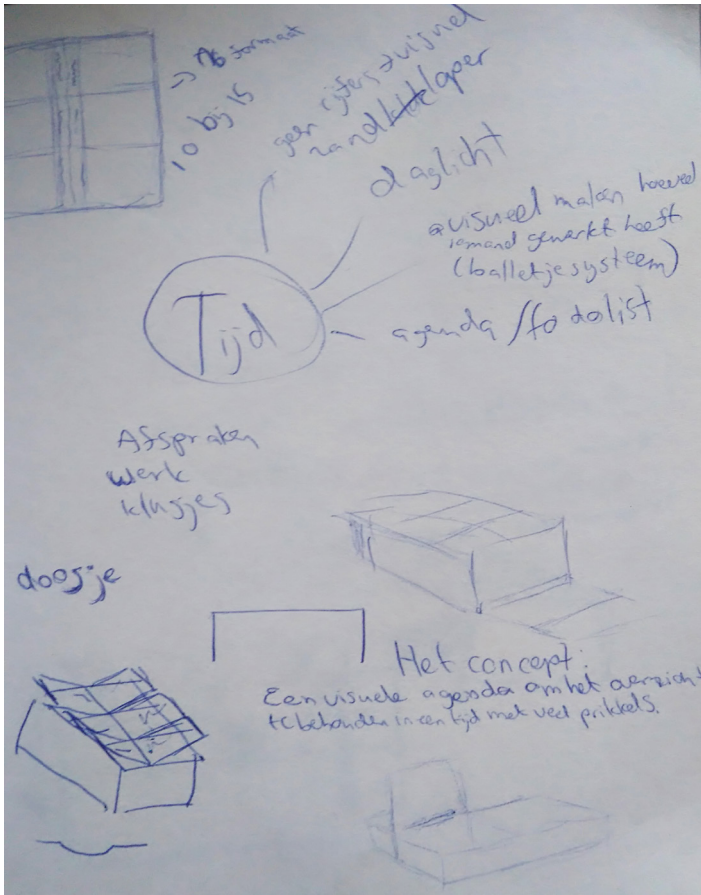 -> A6 formaat
10 bij 15
geen cijfers -> visueel
zandloper
daglicht
visueel maken hoeveel
iemand gewerkt heeft
(balletjesysteem)
Tijd
agenda / to do list
Afspraken
werk
klusjes
doosje
Het concept:
Een visuele agenda om het overzicht
te behouden in een tijd met veel prikkels.